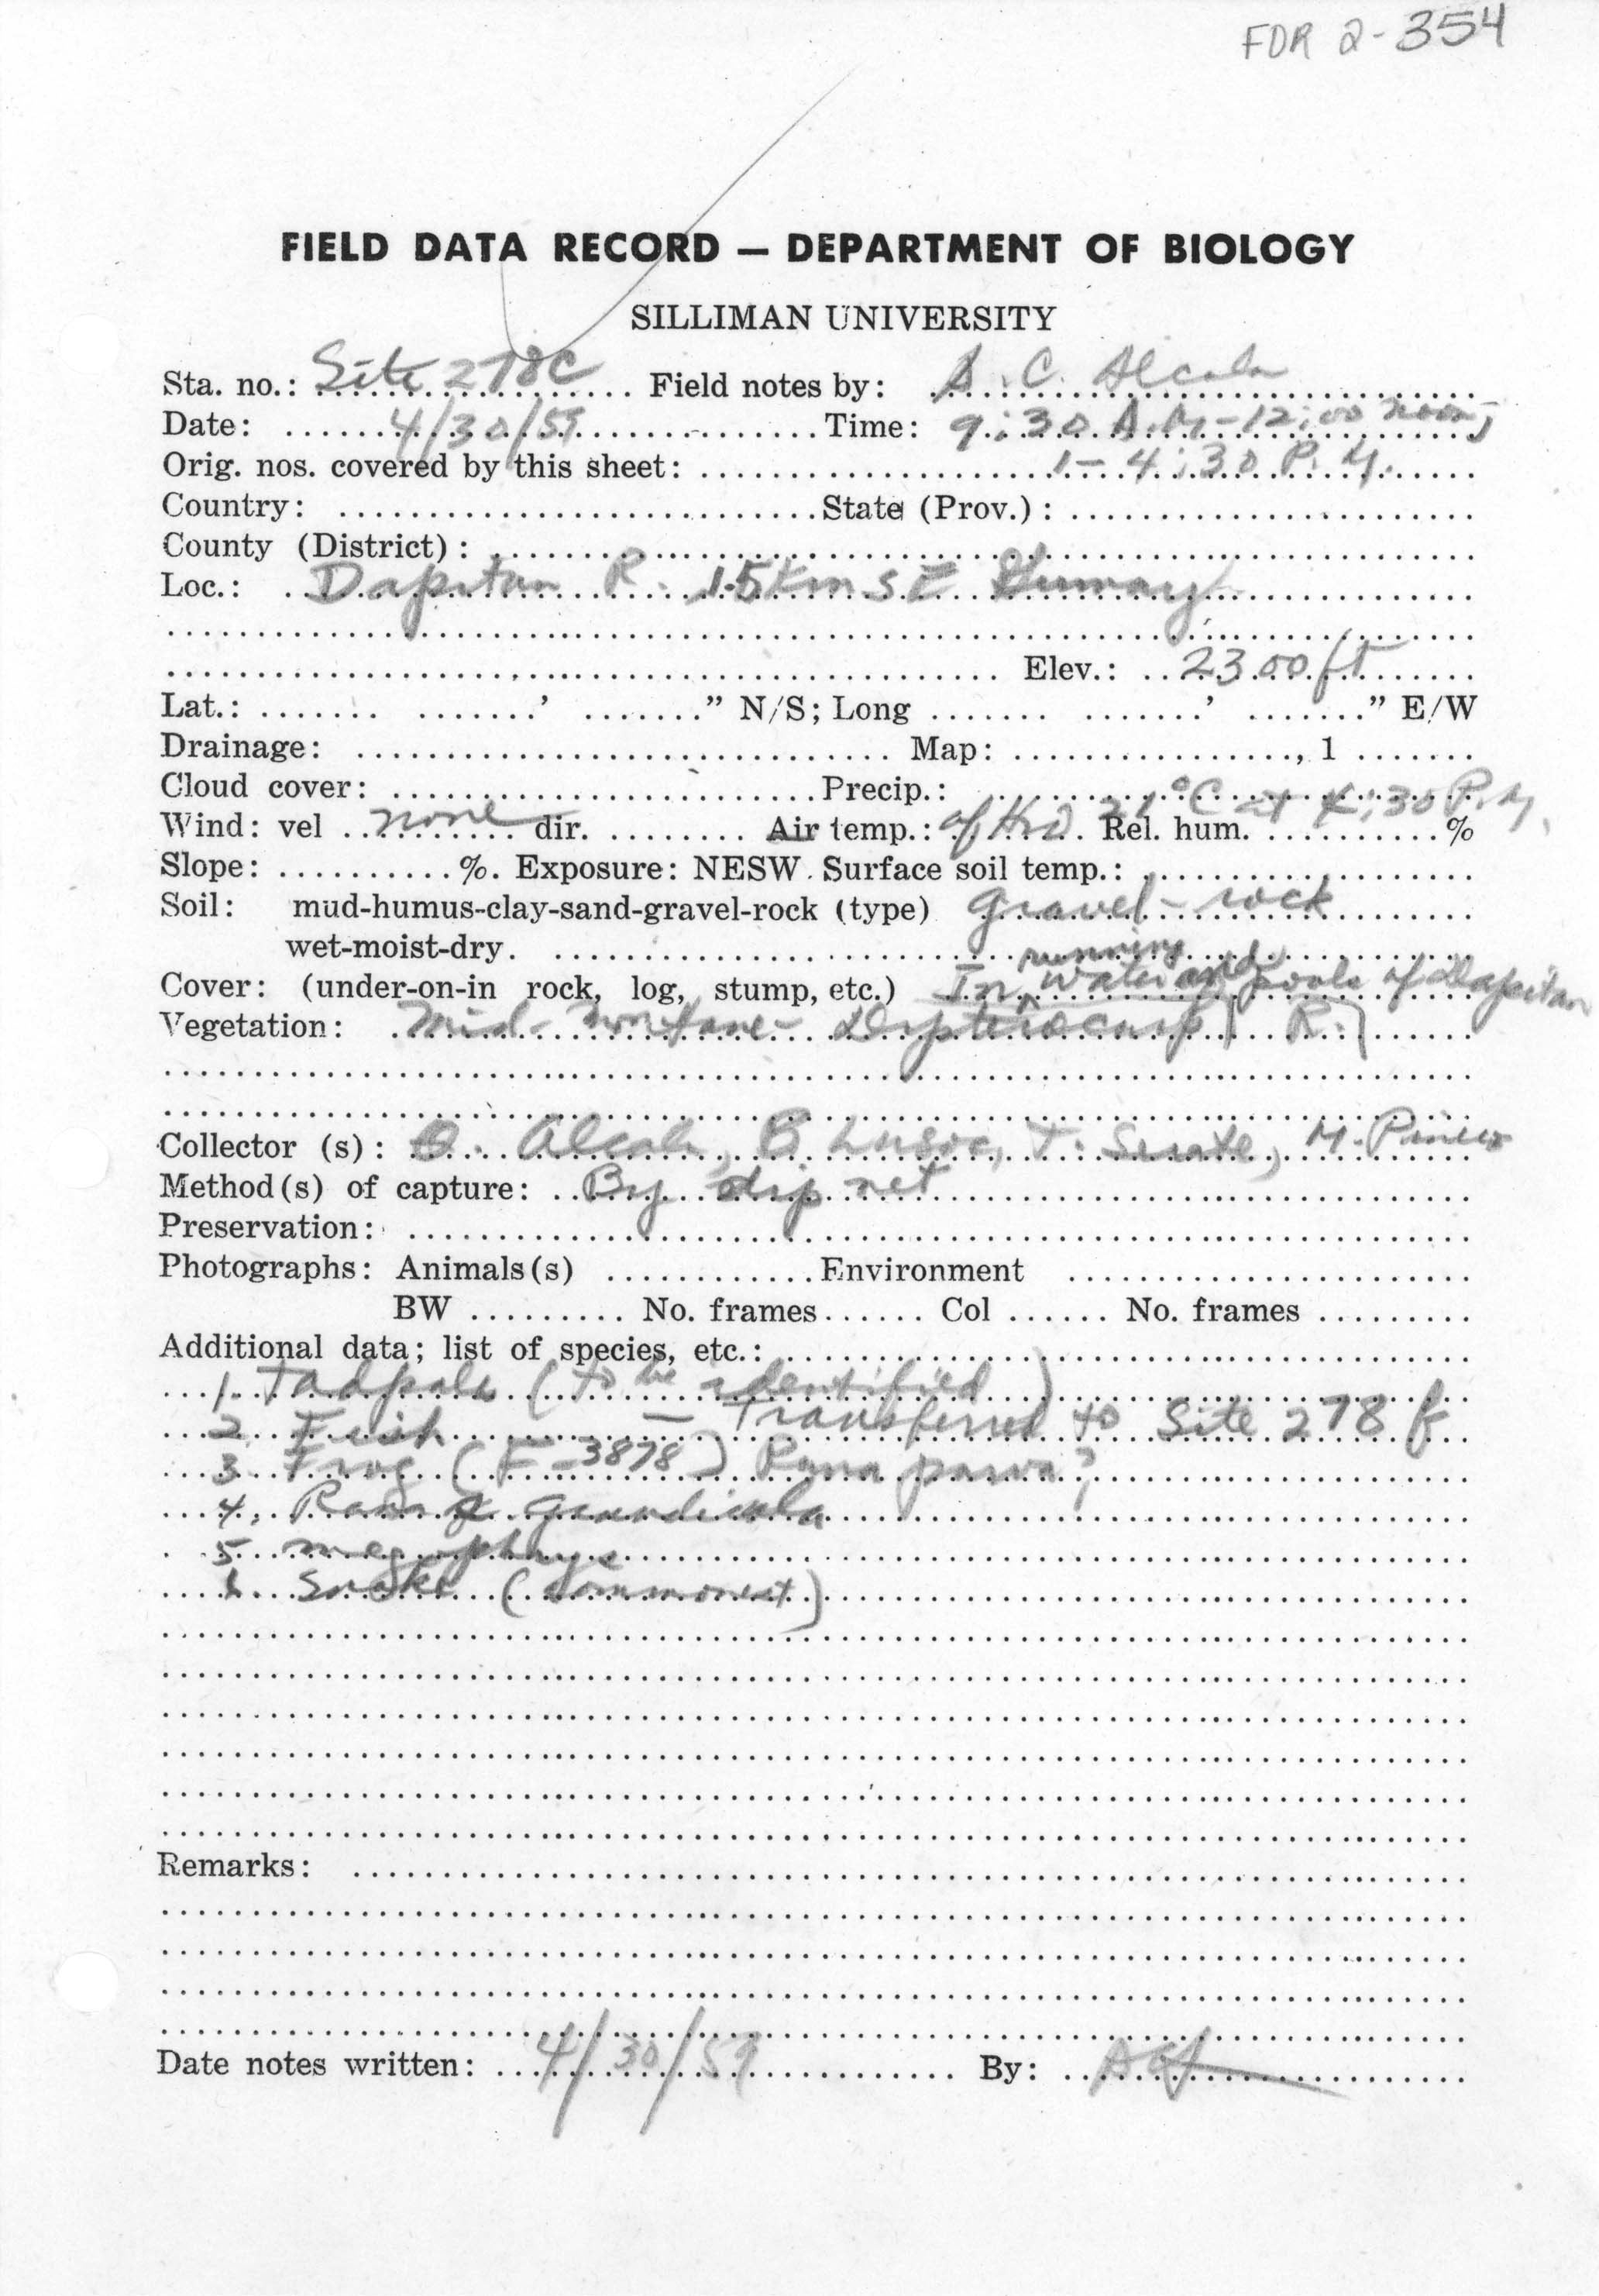 FDR 2-354
FIELD DATA RECORD — DEPARTMENT OF BIOLOGY
SILLIMAN UNIVERSITY
Sta. no.: Site 278C Field notes by: A. C. Alcala
Date: 4/30/59 Time: 9:30 A.M-12:00 noon;
Orig. nos. covered by this sheet: 1-4:30 P.M.
Country: State (Prov.):
County (District):
Loc.: Dapitan R. 1.5 km SE
Elev.: 2300 ft
Lat.: ' " N/S; Long ' " E/W
Drainage: Map: , 1
Cloud cover: Precip.:
Wind: vel none dir. Air temp.: of H2O 21°C at 4:30 P.M. Rel. hum. %
Slope: %. Exposure: NESW. Surface soil temp.:
Soil: mud-humus-clay-sand-gravel-rock (type) gravel-rock
wet-moist-dry.
Cover: (under-on-in rock, log, stump, etc.) In running water and pools of Dapitan R.
Vegetation: Mid-montane-Dipterocarp
Collector (s): Alcala, B Lusoc, T. M.
Method(s) of capture: By dip net
Preservation:
Photographs: Animals(s) Environment
BW No. frames Col No. frames
Additional data; list of species, etc.:
1. Tadpole (to be identified)
2. Fish — Transferred to Site 278 f
3. Frog (F-3878) Rana parva?
4. Rana
5 megophrys
6. Snake (commonest)
Remarks:
Date notes written: 4/30/59 By: